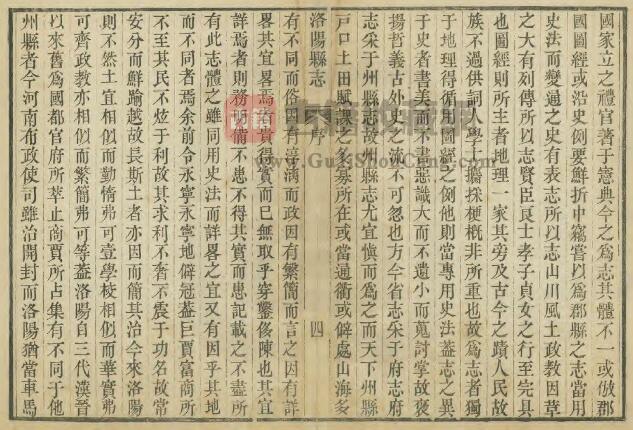 國家立之禮官著于憲典今之為志其體不一或倣郡
國圖經或沿史例要鮮折中竊嘗以為郡縣之志當用
史法而變通之史有表志所以志山川風土政教因革
之大有列傳所以志賢臣良士孝子貞女之行至完具
也圖經則所主者地理一家其旁及古今之蹟人民故
族不過供詞人學士攟採梗概非所重也故為志者獨
于地理得循用圖經之例他則當專用史法蓋志之異
于史者書美而不書惡識大而不遺小而蒐討掌故褒
揚哲義古外史之流不可忽也方今省志采于府志府
志采于州縣志故州縣志尤宜慎而為之而天下州縣
戸口土田賦課之多寡所在或當通衢或僻處山海多
洛陽縣志 序 四
有不同而俗因有淳漓而政因有繁簡而言之因有詳
畧其宜畧焉者貴得實而已無取乎穿鑿侈陳也其宜
詳焉者則務所備不患不得其實而患記載之不盡所
有此志體之雖同用史法而詳畧之宜又有因乎其地
而不同者焉余前令永寧永寧地僻冠蓋巨賈富商所
不至其民不炫于利故其求利不奢不震于功名故常
安分而鮮踰越故長斯土者亦因而簡其治今來洛陽
則不然土宜相似而勤惰弗可壹學校相似而華實弗
可齊政教亦相似而繁簡弗可等蓋洛陽自三代漢晉
以來舊為國都官府所萃止商賈所占集有不同于他
州縣者今河南布政使司雖治開封而洛陽猶當車馬